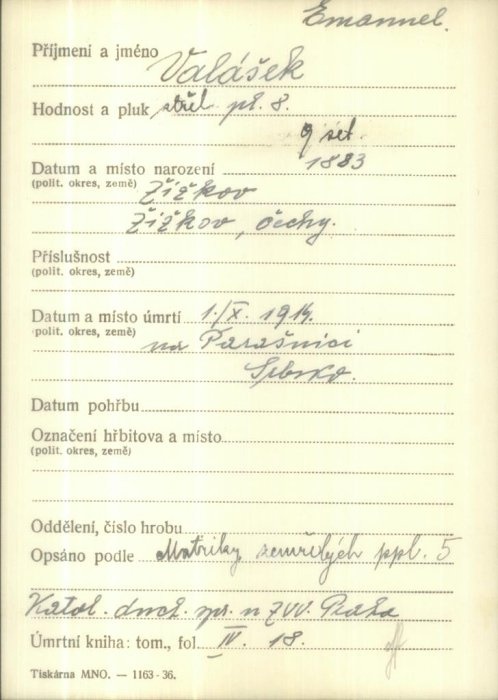 Emanuel.
Příjmení a jméno Valášek
Hodnost a pluk střel. pl. 8.
9 set.
Datum a místo narození 1883
(polit. okres, země) Žižkov
Žižkov, Čechy.
Příslušnost
(polit. okres, země)
Datum a místo úmrtí 1./X. 1914.
(polit. okres, země) na Parašnici
Srbsko.
Datum pohřbu
Označení hřbitova a místo
(polit. okres, země)
Oddělení, číslo hrobu
Opsáno podle Matriky zemřelých ppl. 5
Katol. duch. spr. u ZVV. Praha
Úmrtní kniha: tom., fol. IV. 18.
Tiskárna MNO. — 1163-36.